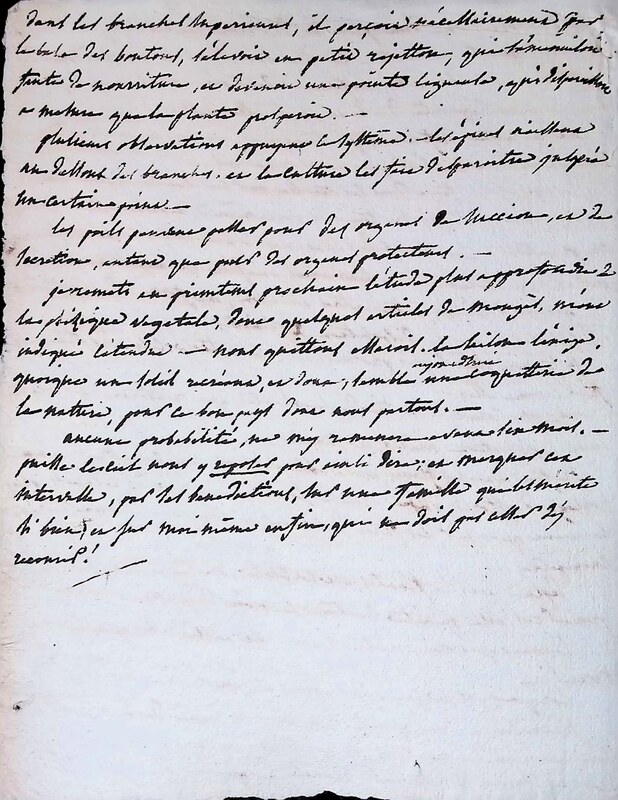 dans les branches superieures, il perçoit nécessairement par
la base des boutons, s'élevoir en petit rejetton, qui s'émousse
faute de nourriture, et devenoir une pointe ligneuse, qui disparoissoit
a mesure que la plante prosperoit. —
plusieurs observations appuyent ce systême. les épines naissent
au dessous des branches, et la culture les fait disparoitre jusqu'à
un certain point. —
les poils peuvent passer pour des organes de succion, et de
secretion, autant que pour des organes protecteurs. —
je remets au printems prochain l'étude plus approfondie de
la phisique vegetale, dont quelques articles de mongès, m'ont
indiqué l'étendue — nous quittons Marois. la saison l'éxige.
quoique un soleil recréant, et doux, semble aujourd'hui une coquetterie de
la nature, pour ce bon pays dont nous partons. —
aucune probabilité, ne m'y ramenera avant six mois. —
puisse le ciel nous y reposer pour ainsi dire; et marquer cet
intervalle, par ses benedictions, sur une famille qui les mérite
si bien; et sur moi même enfin, qui ne dois pas cesser d'y
recourir!